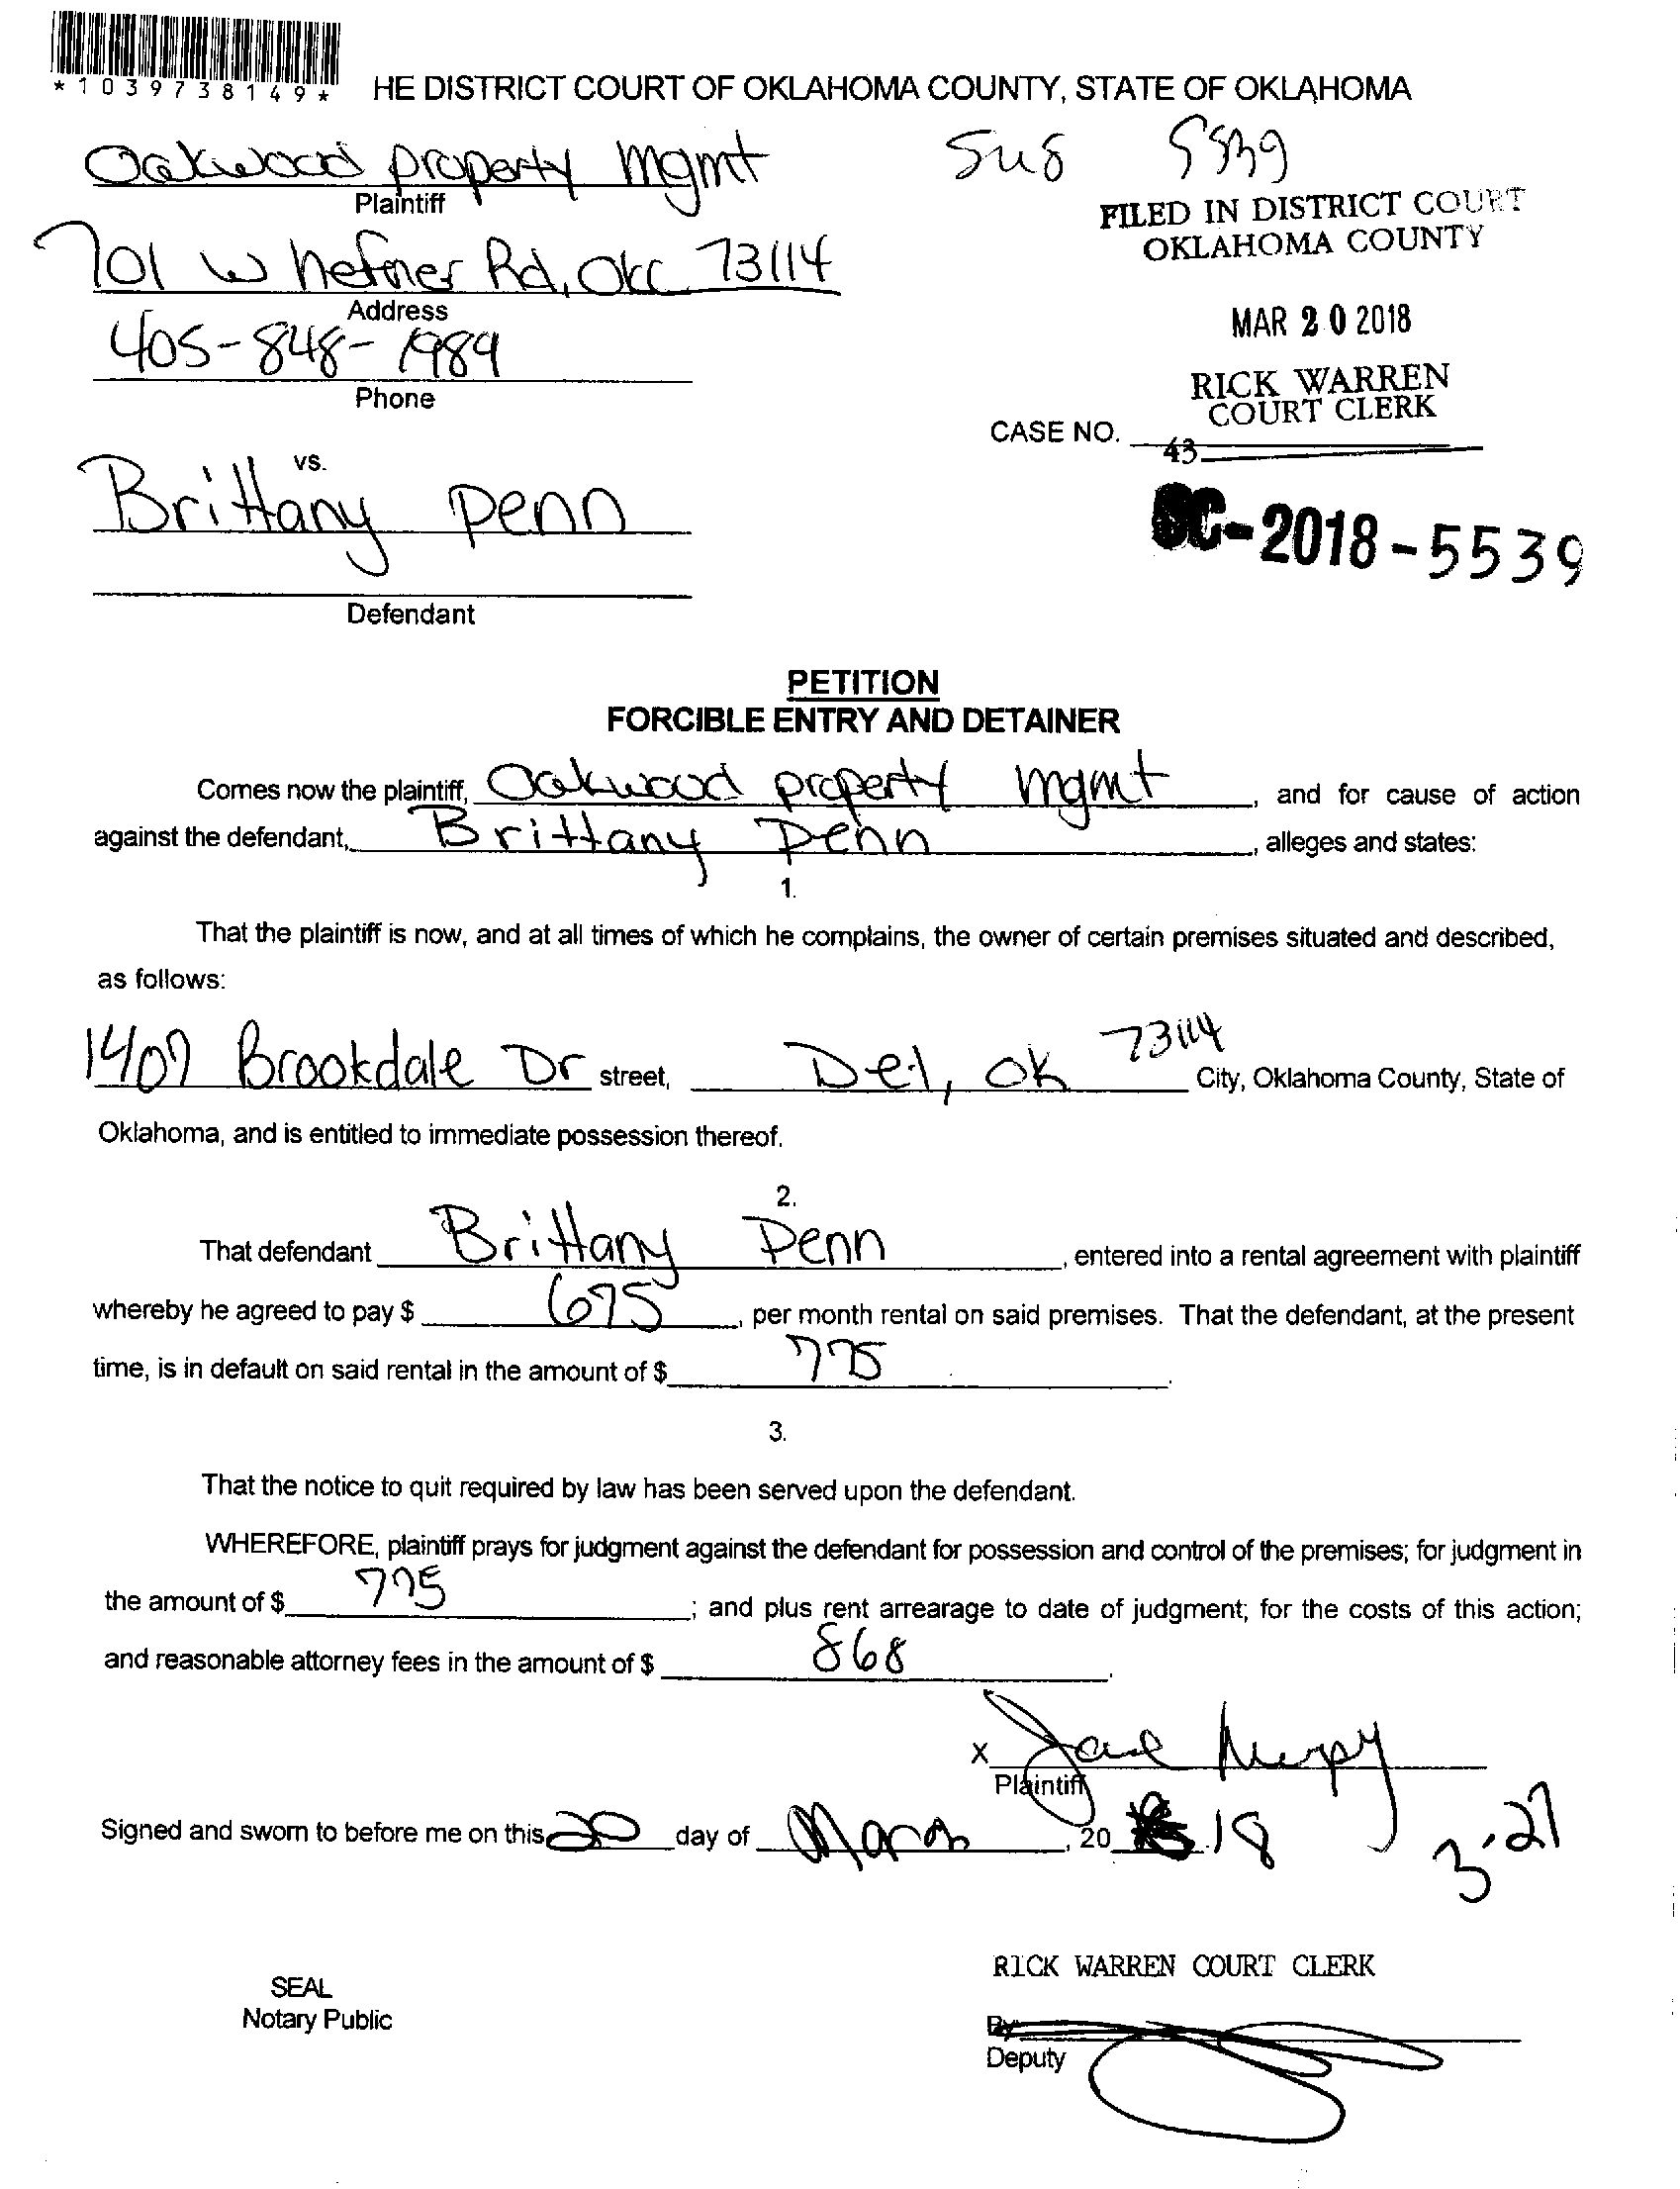 *1039738149*
HE DISTRICT COURT OF OKLAHOMA COUNTY, STATE OF OKLAHOMA
Oakwood property mgmt
Plaintiff
5539
FILED IN DISTRICT COURT
OKLAHOMA COUNTY
701 W hefner Rd, OKC 73114
Address
MAR 20 2018
405-848-1989
Phone
RICK WARREN
COURT CLERK
CASE NO.
43
vs.
Brittany Penn
SC-2018-5539
Defendant
PETITION
FORCIBLE ENTRY AND DETAINER
Comes now the plaintiff, Oakwood property mgmt, and for cause of action
against the defendant, Brittany Penn, alleges and states:
1.
That the plaintiff is now, and at all times of which he complains, the owner of certain premises situated and described,
as follows:
1407 Brookdale Dr street, Del, OK 73114 City, Oklahoma County, State of
Oklahoma, and is entitled to immediate possession thereof.
2.
That defendant Brittany Penn, entered into a rental agreement with plaintiff
whereby he agreed to pay $ 675, per month rental on said premises. That the defendant, at the present
time, is in default on said rental in the amount of $ 775.
3.
That the notice to quit required by law has been served upon the defendant.
WHEREFORE, plaintiff prays for judgment against the defendant for possession and control of the premises; for judgment in
the amount of $ 775; and plus rent arrearage to date of judgment; for the costs of this action;
and reasonable attorney fees in the amount of $ 868.
X
Plaintiff
Signed and sworn to before me on this 20 day of March, 20 18
3.27
RICK WARREN COURT CLERK
SEAL
Notary Public
By
Deputy